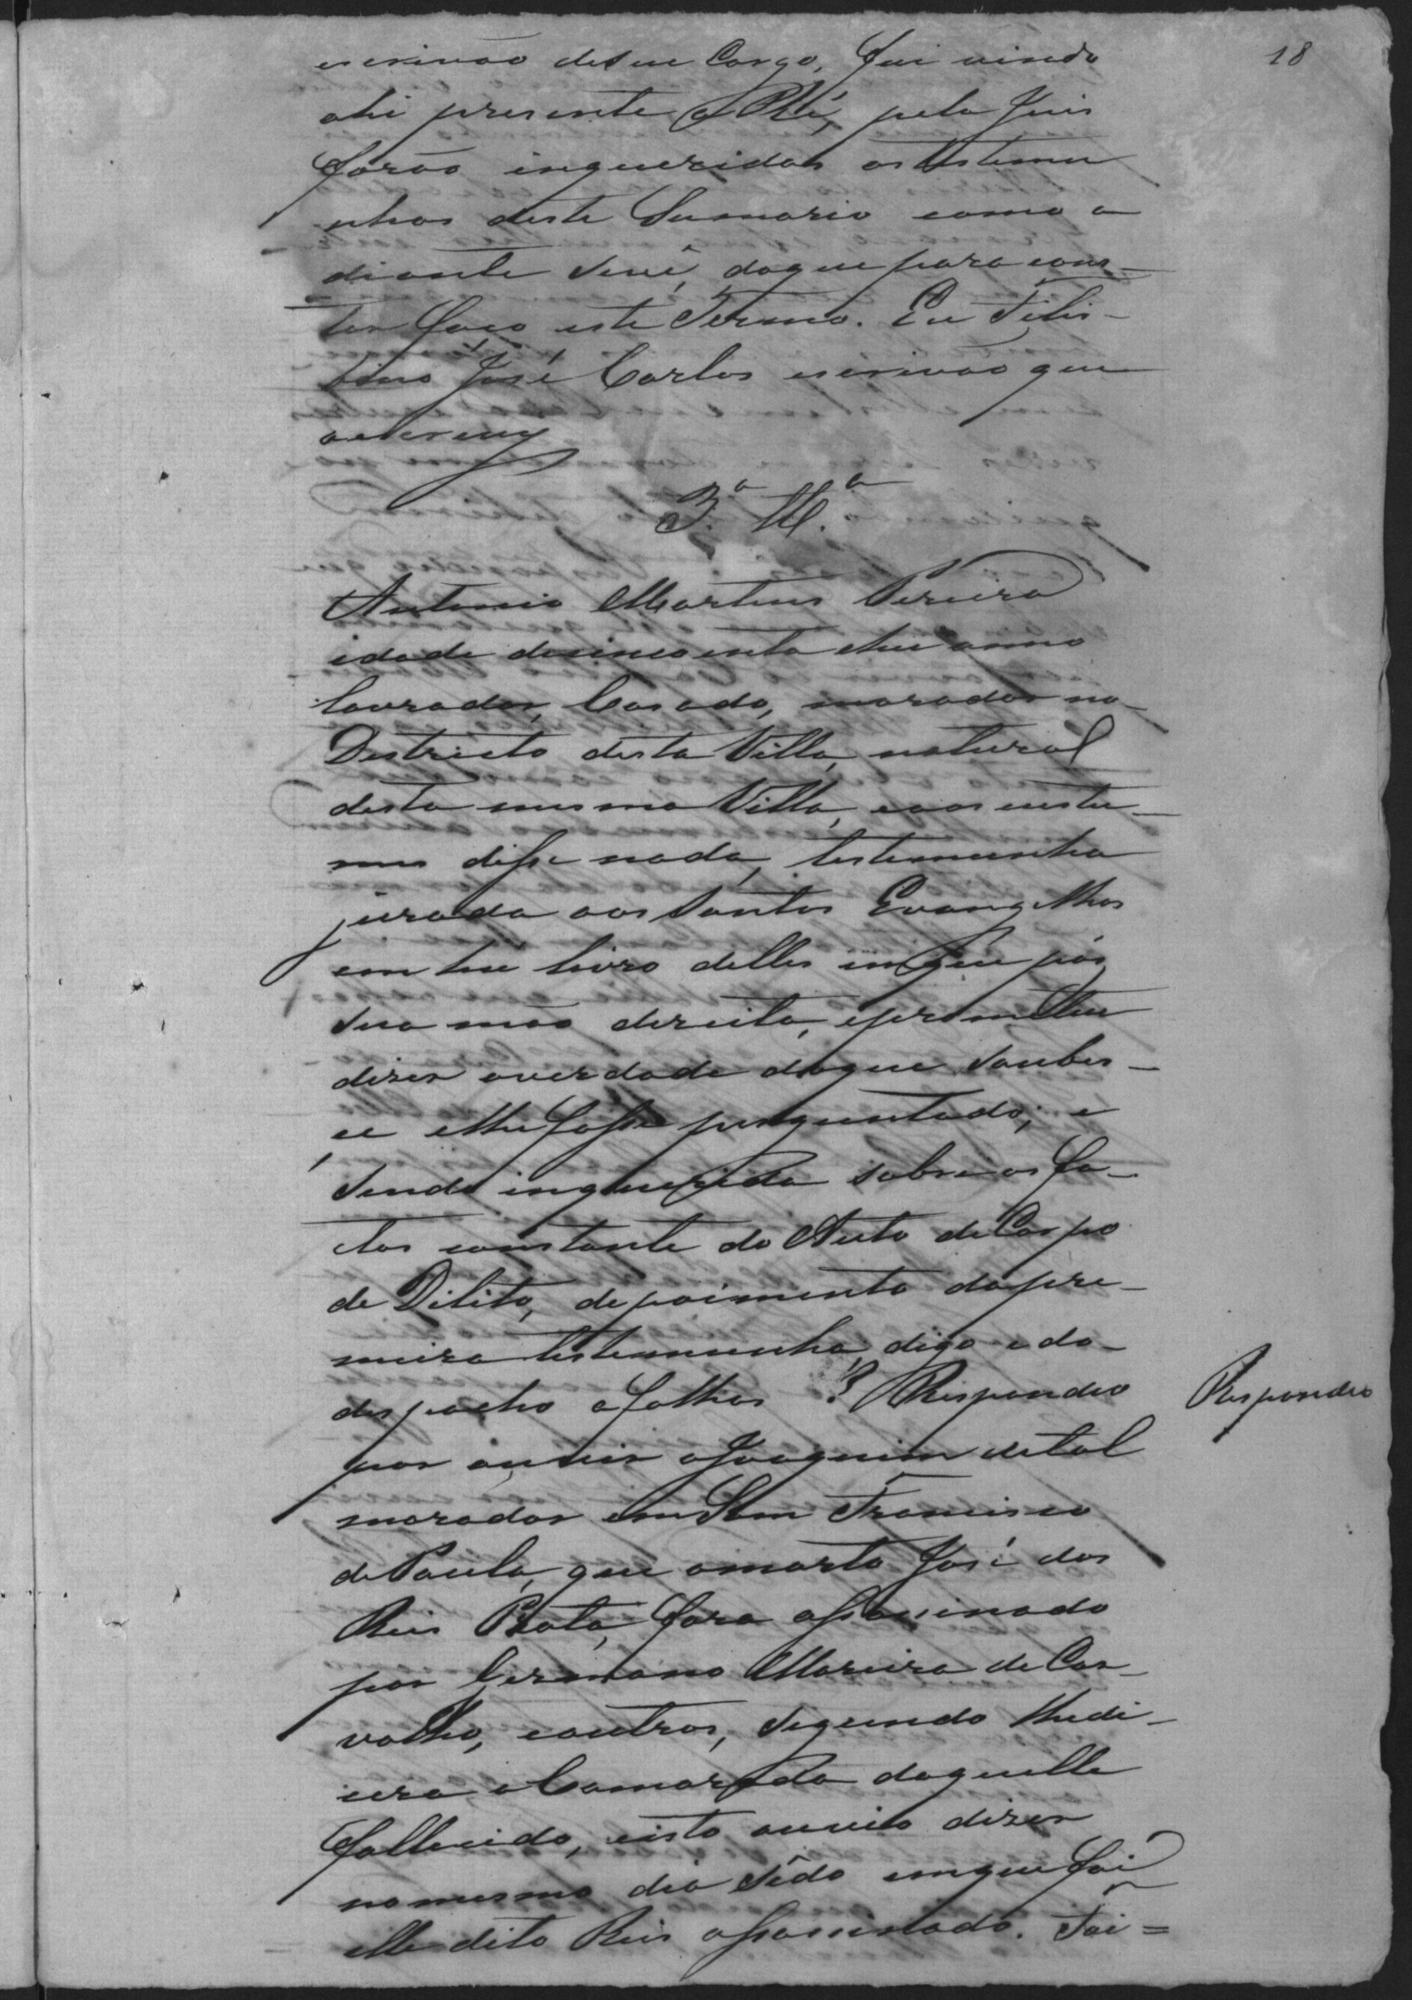 18
escrivão de seu Cargo, fui vindo
ahi presente o Réo, pelo Juis
forão inqueridas as testemu
nhas deste Sumario como a
diante se vê, do que para cons-
tar faço este Termo. Eu
José Carlos escrivão que
o escrevy
3.ª T.ª
Antonio Martins Pereira
idade de sincoenta e hu anno
lavrador, Casado, morador no
Destricto desta Villa, natural
desta mesma Villa, e aos custu-
mes disse nada, testemunha
jurada aos Santos Evangelhos
em hu livro delles em que pôs
sua mão direita, e prometteu
dizer averdade do que soubes-
se e lhe fosse perguntado, e
sendo inquerida sobre os fa-
ctos constante do Auto de Corpo
de Dilito, depoimento da pri-
meira testemunha, digo e do
despacho a folhas ? Respondeo
Respondeo
por ouvir a Joaquim de tal
morador em Sam Francisco
de Paula, que o morto José dos
Reis Prata, fora assassinado
por Germano Moreira de Car-
valho, e outros, segundo lhe di-
cera o Camarada daquelle
fallecido, e isto ouvio dizer
no mesmo dia em que foi
elle dito Reis assassinado. Foi=